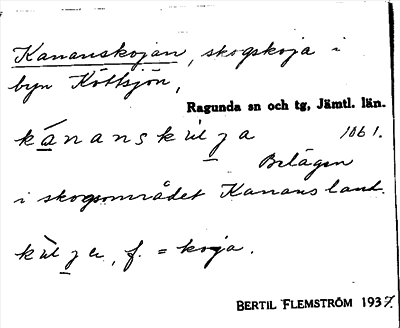 Kananskojan, skogskoja i
bynKöttsjön,
Ragunda sn och tg, Jämtl. län.
kánanskùlʒa 1061.
Belägen
i skogsområdet Kanans land.
kùlʒa, f. = koja.
BERTIL FLEMSTRÖM 1937.